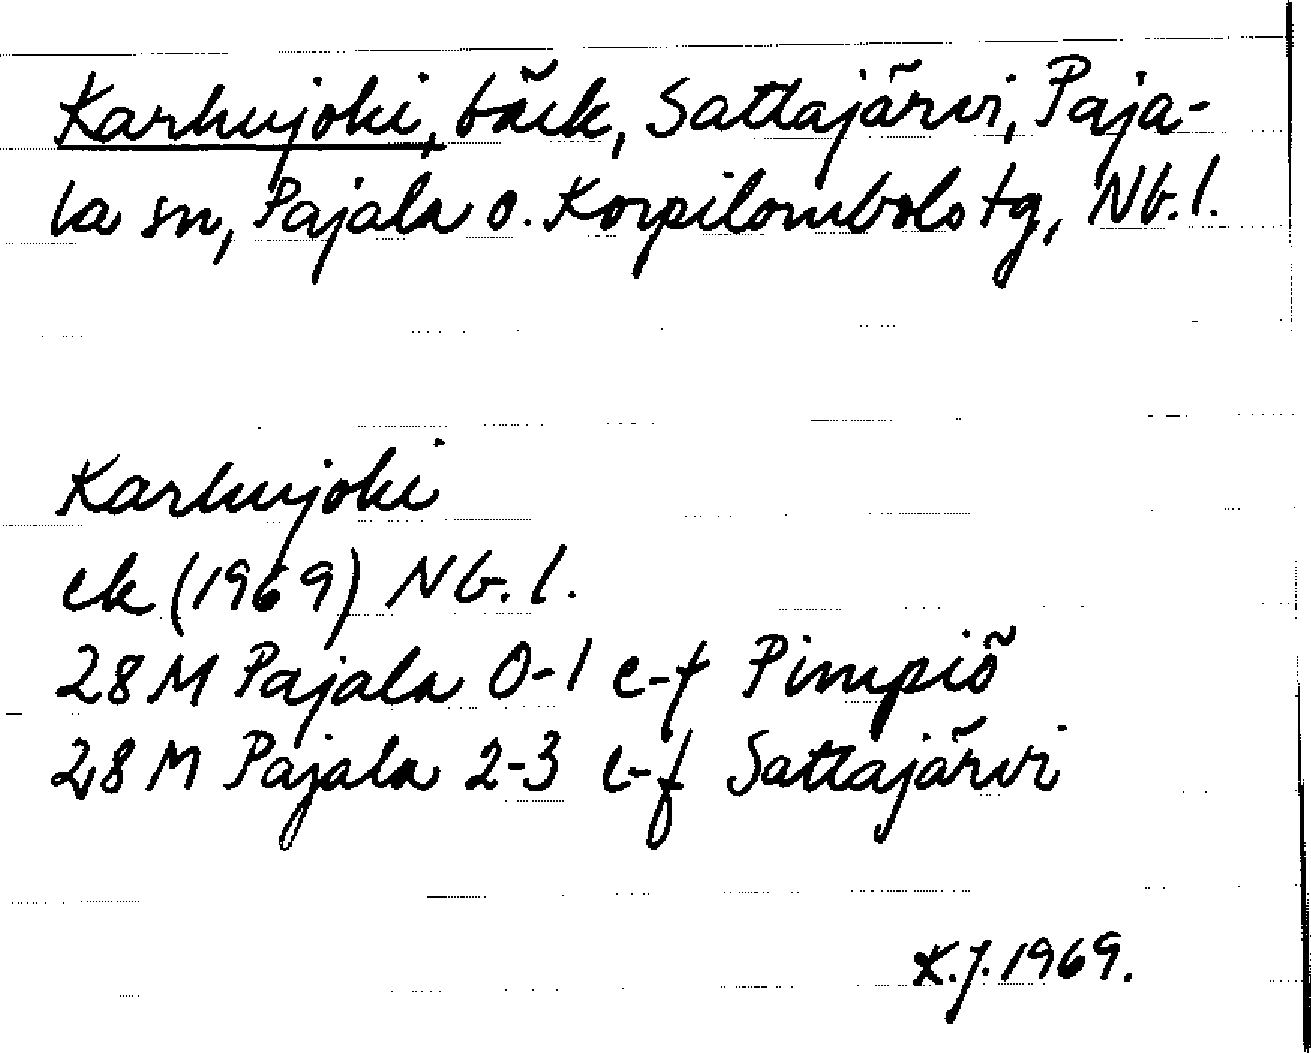 Karhujoki, bäck, Sattajärvi, Paja-
la sn, Pajala o. Korpilombolo tg, Nb. l.
Karhujoki
ek (1969) Nb. l.
28 M Pajala 0-1 e-f Pimpiö
28 M Pajala 2-3 e-f Sattajärvi
K.J. 1969.